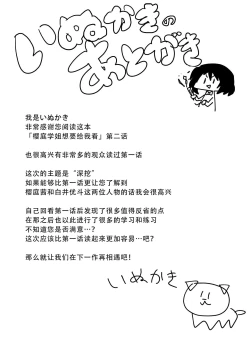 いぬかきの
あとがき
我是いぬかき
非常感谢您阅读这本
「樱庭学姐想要给我看」第二话
也很高兴有非常多的观众读过第一话
这次的主题是“深挖”
如果能够比第一话更让您了解到
樱庭茜和白井优斗这两位人物的话我会很高兴
自己回看第一话后发现了很多值得反省的点
在那之后也以此进行了很多的学习和练习
不知道您是否满意…？
这次应该比第一话读起来更加容易…吧？
那么就让我们在下一作再相遇吧！
いぬかき